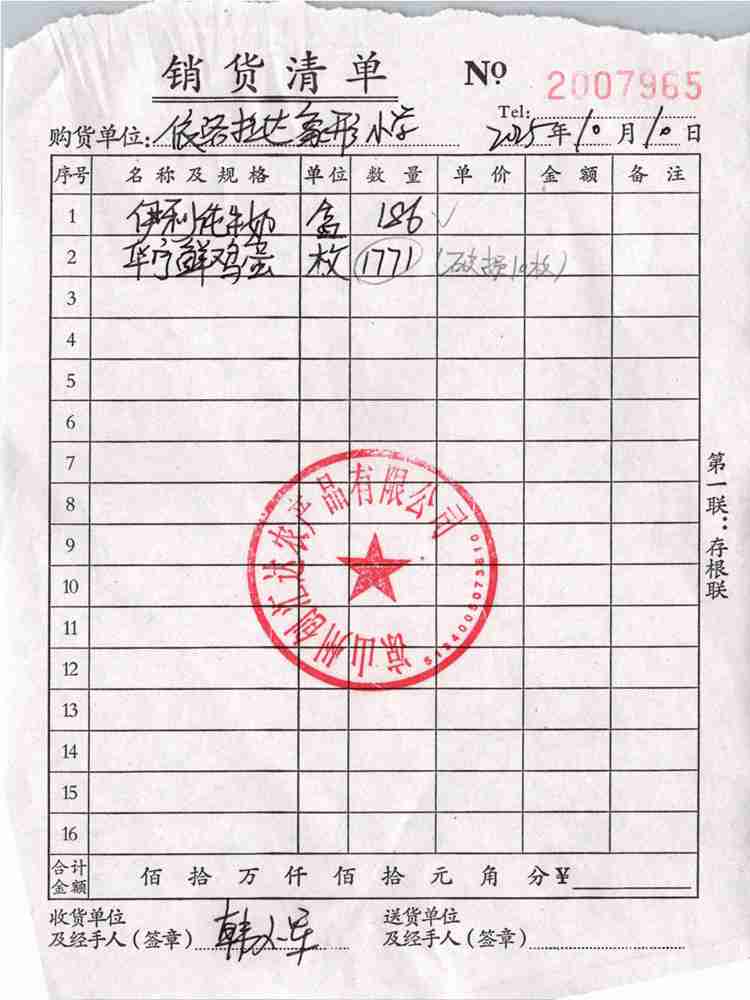 销货清单 Nº 2007965
Tel:
购货单位: 依洛拉达象形小学 2025年10月10日
序号 名称及规格 单位 数量 单价 金额 备注
1 伊利纯牛奶 盒 186 ✓
2 华宁鲜鸡蛋 枚 1771 (破损10枚)
3
4
5
6
7
8
9
10
11
12
13
14
15
16
凉山州创汇达农产品有限公司
第一联：存根联
合计金额 佰拾万仟佰拾元角分¥
收货单位 送货单位
及经手人（签章） 及经手人（签章）